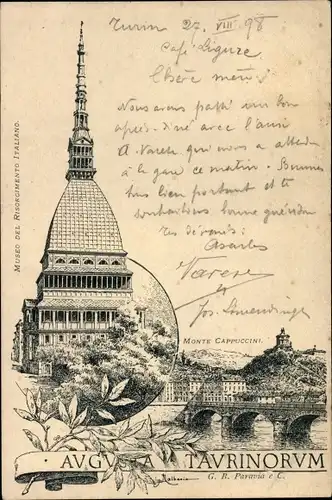 Turin 27. VIII 98
Café Ligure
Chère mère!
Nous avons passé un bon
après-dîné avec l'ami
A. Varese qui nous a attendu
à la gare ce matin.
tous bien portant et te
souhaitons bonne guérison
Varese
MUSEO DEL RISORGIMENTO ITALIANO.
MONTE CAPPUCCINI.
AVGVSTA TAVRINORVM
G. B. Paravia e C.